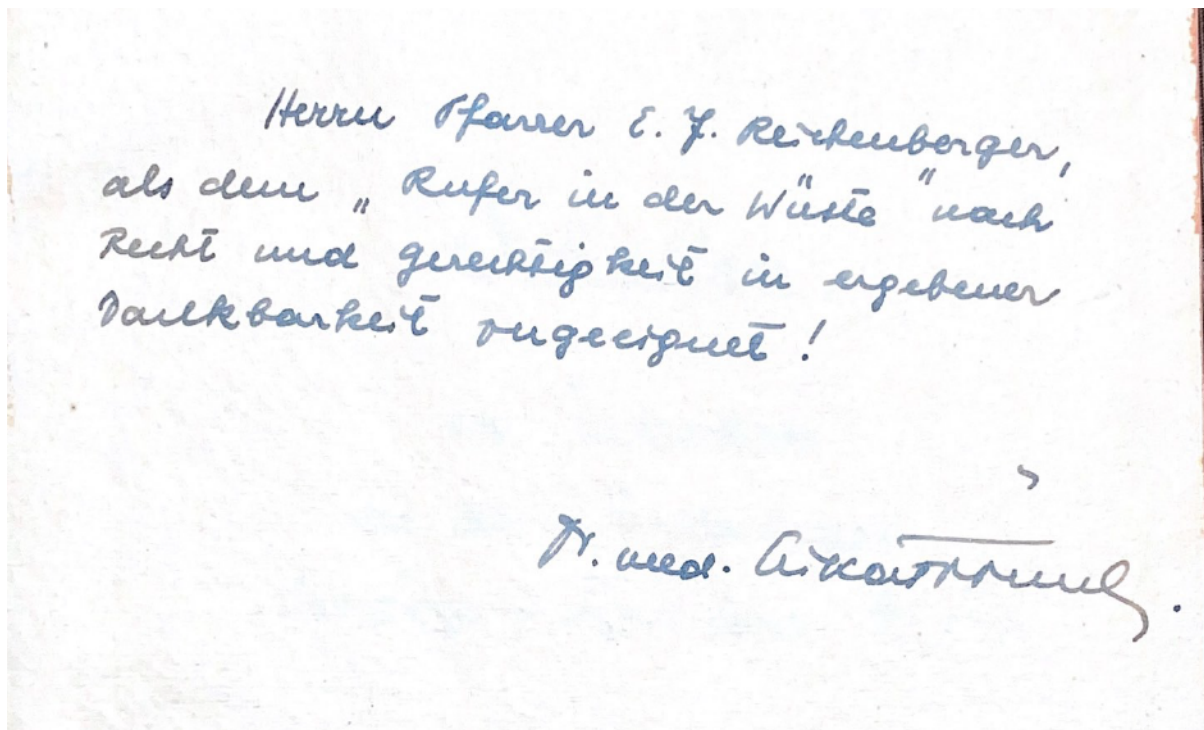 Herrn Pfarrer E. J. Reichenberger,
als dem „Rufer in der Wüste" nach
Recht und Gerechtigkeit in ergebener
Dankbarkeit zugeeignet!
Dr. med.